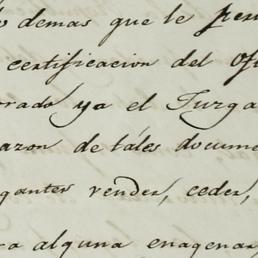 demas que le
certificacion del
ya el Juzga
azon de táles docume
gantes vender, ceder,
ra alguna enagenar